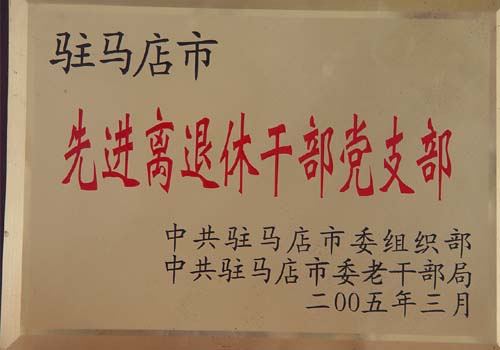 驻马店市
先进离退休干部党支部
中共驻马店市委组织部
中共驻马店市委老干部局
二00五年三月